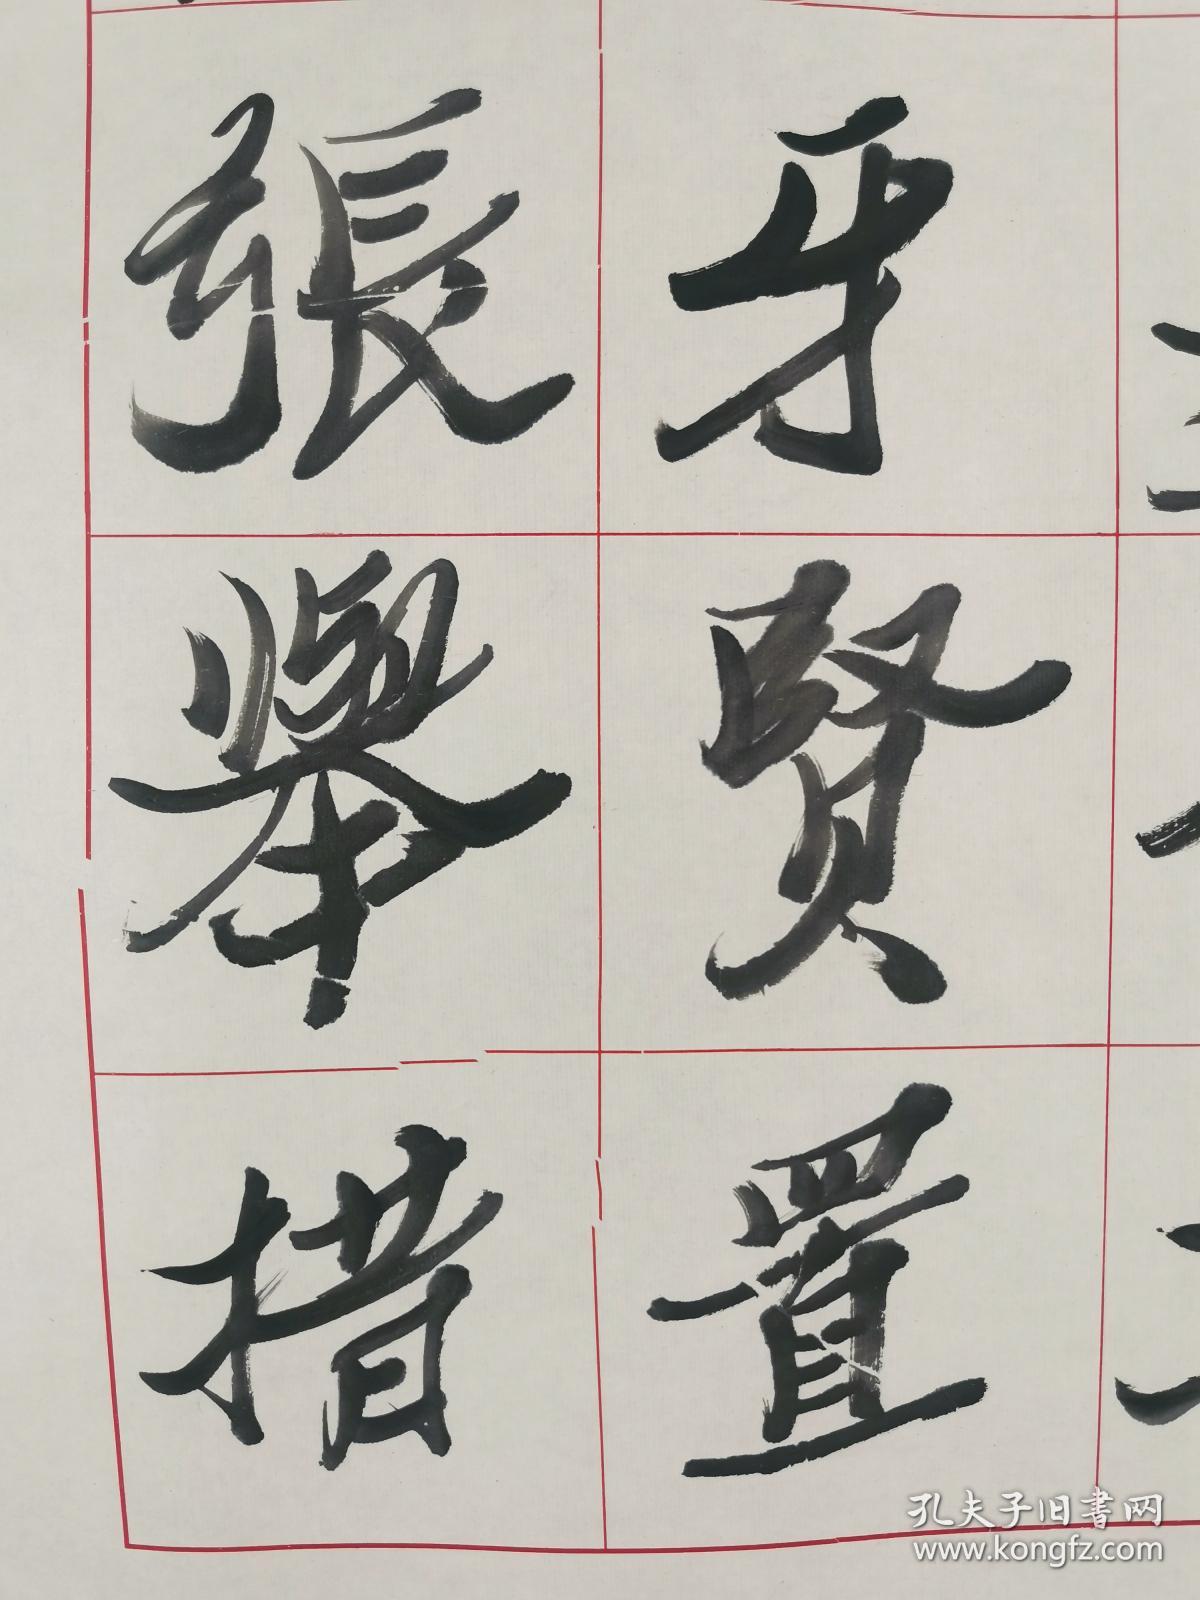 牙賢置
張舉措
孔夫子旧書网
www.kongfz.com